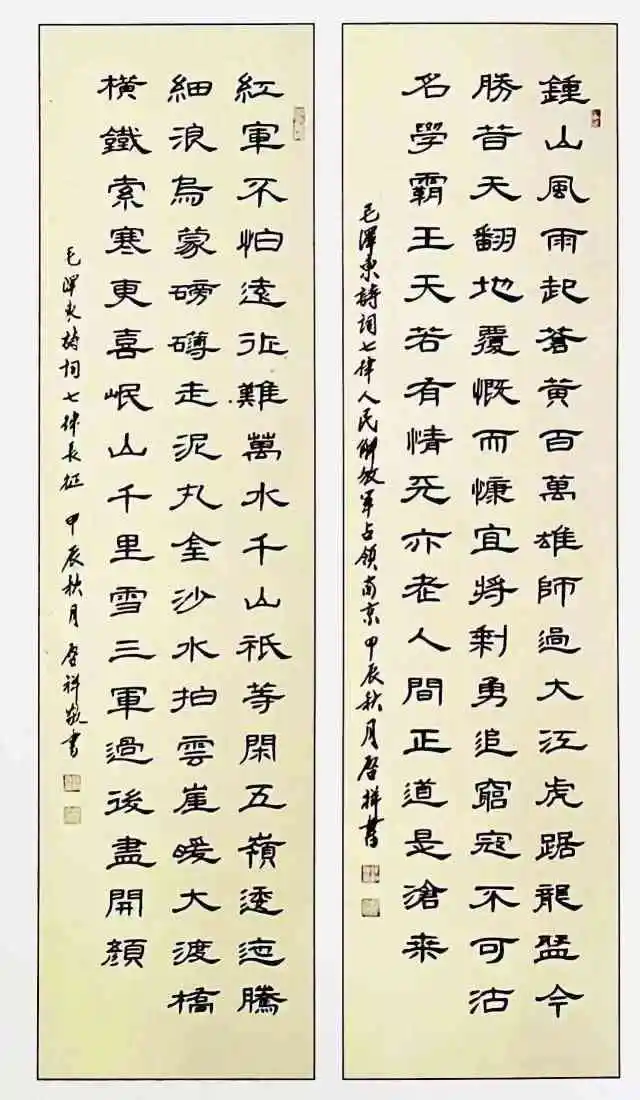 鍾山風雨起蒼黃百萬雄師過大江虎踞龍盤今
勝昔天翻地覆慨而慷宜將剩勇追窮寇不可沽
名學霸王天若有情天亦老人間正道是滄桒
毛澤東詩詞七律人民解放軍占領南京 甲辰秋月啓祥書
紅軍不怕遠征難萬水千山衹等閑五嶺逶迤騰
細浪烏蒙磅礴走泥丸金沙水拍雲崖暖大渡橋
橫鐵索寒更喜岷山千里雪三軍過後盡開顔
毛澤東詩詞七律長征 甲辰秋月 啓祥敬書